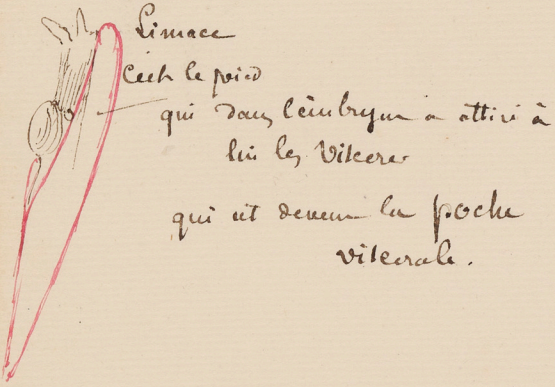 Limace
C'est le pied
qui dans l'embryon a attiré à
lui les viscères
qui est devenu la poche
viscérale.